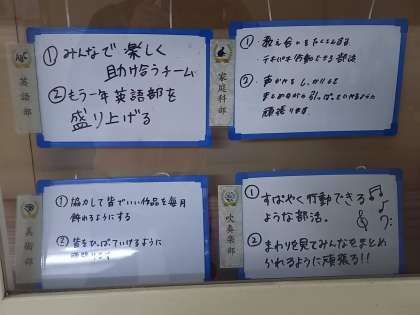 英語部
①みんなで楽しく
助け合うチーム
②もう一年英語部を
盛り上げる
家庭科部
①教え合いをたくさんする
テキパキ行動できる部活
②声かけをしっかりして
まとめながら引っぱっていけるように
頑張ります
美術部
①協力して皆でいい作品を毎月
飾れるようにする
②皆をひっぱっていけるように
頑張ります
吹奏楽部
①すばやく行動できる
ような部活。
②まわりを見てみんなをまとめ
られるように頑張る!!